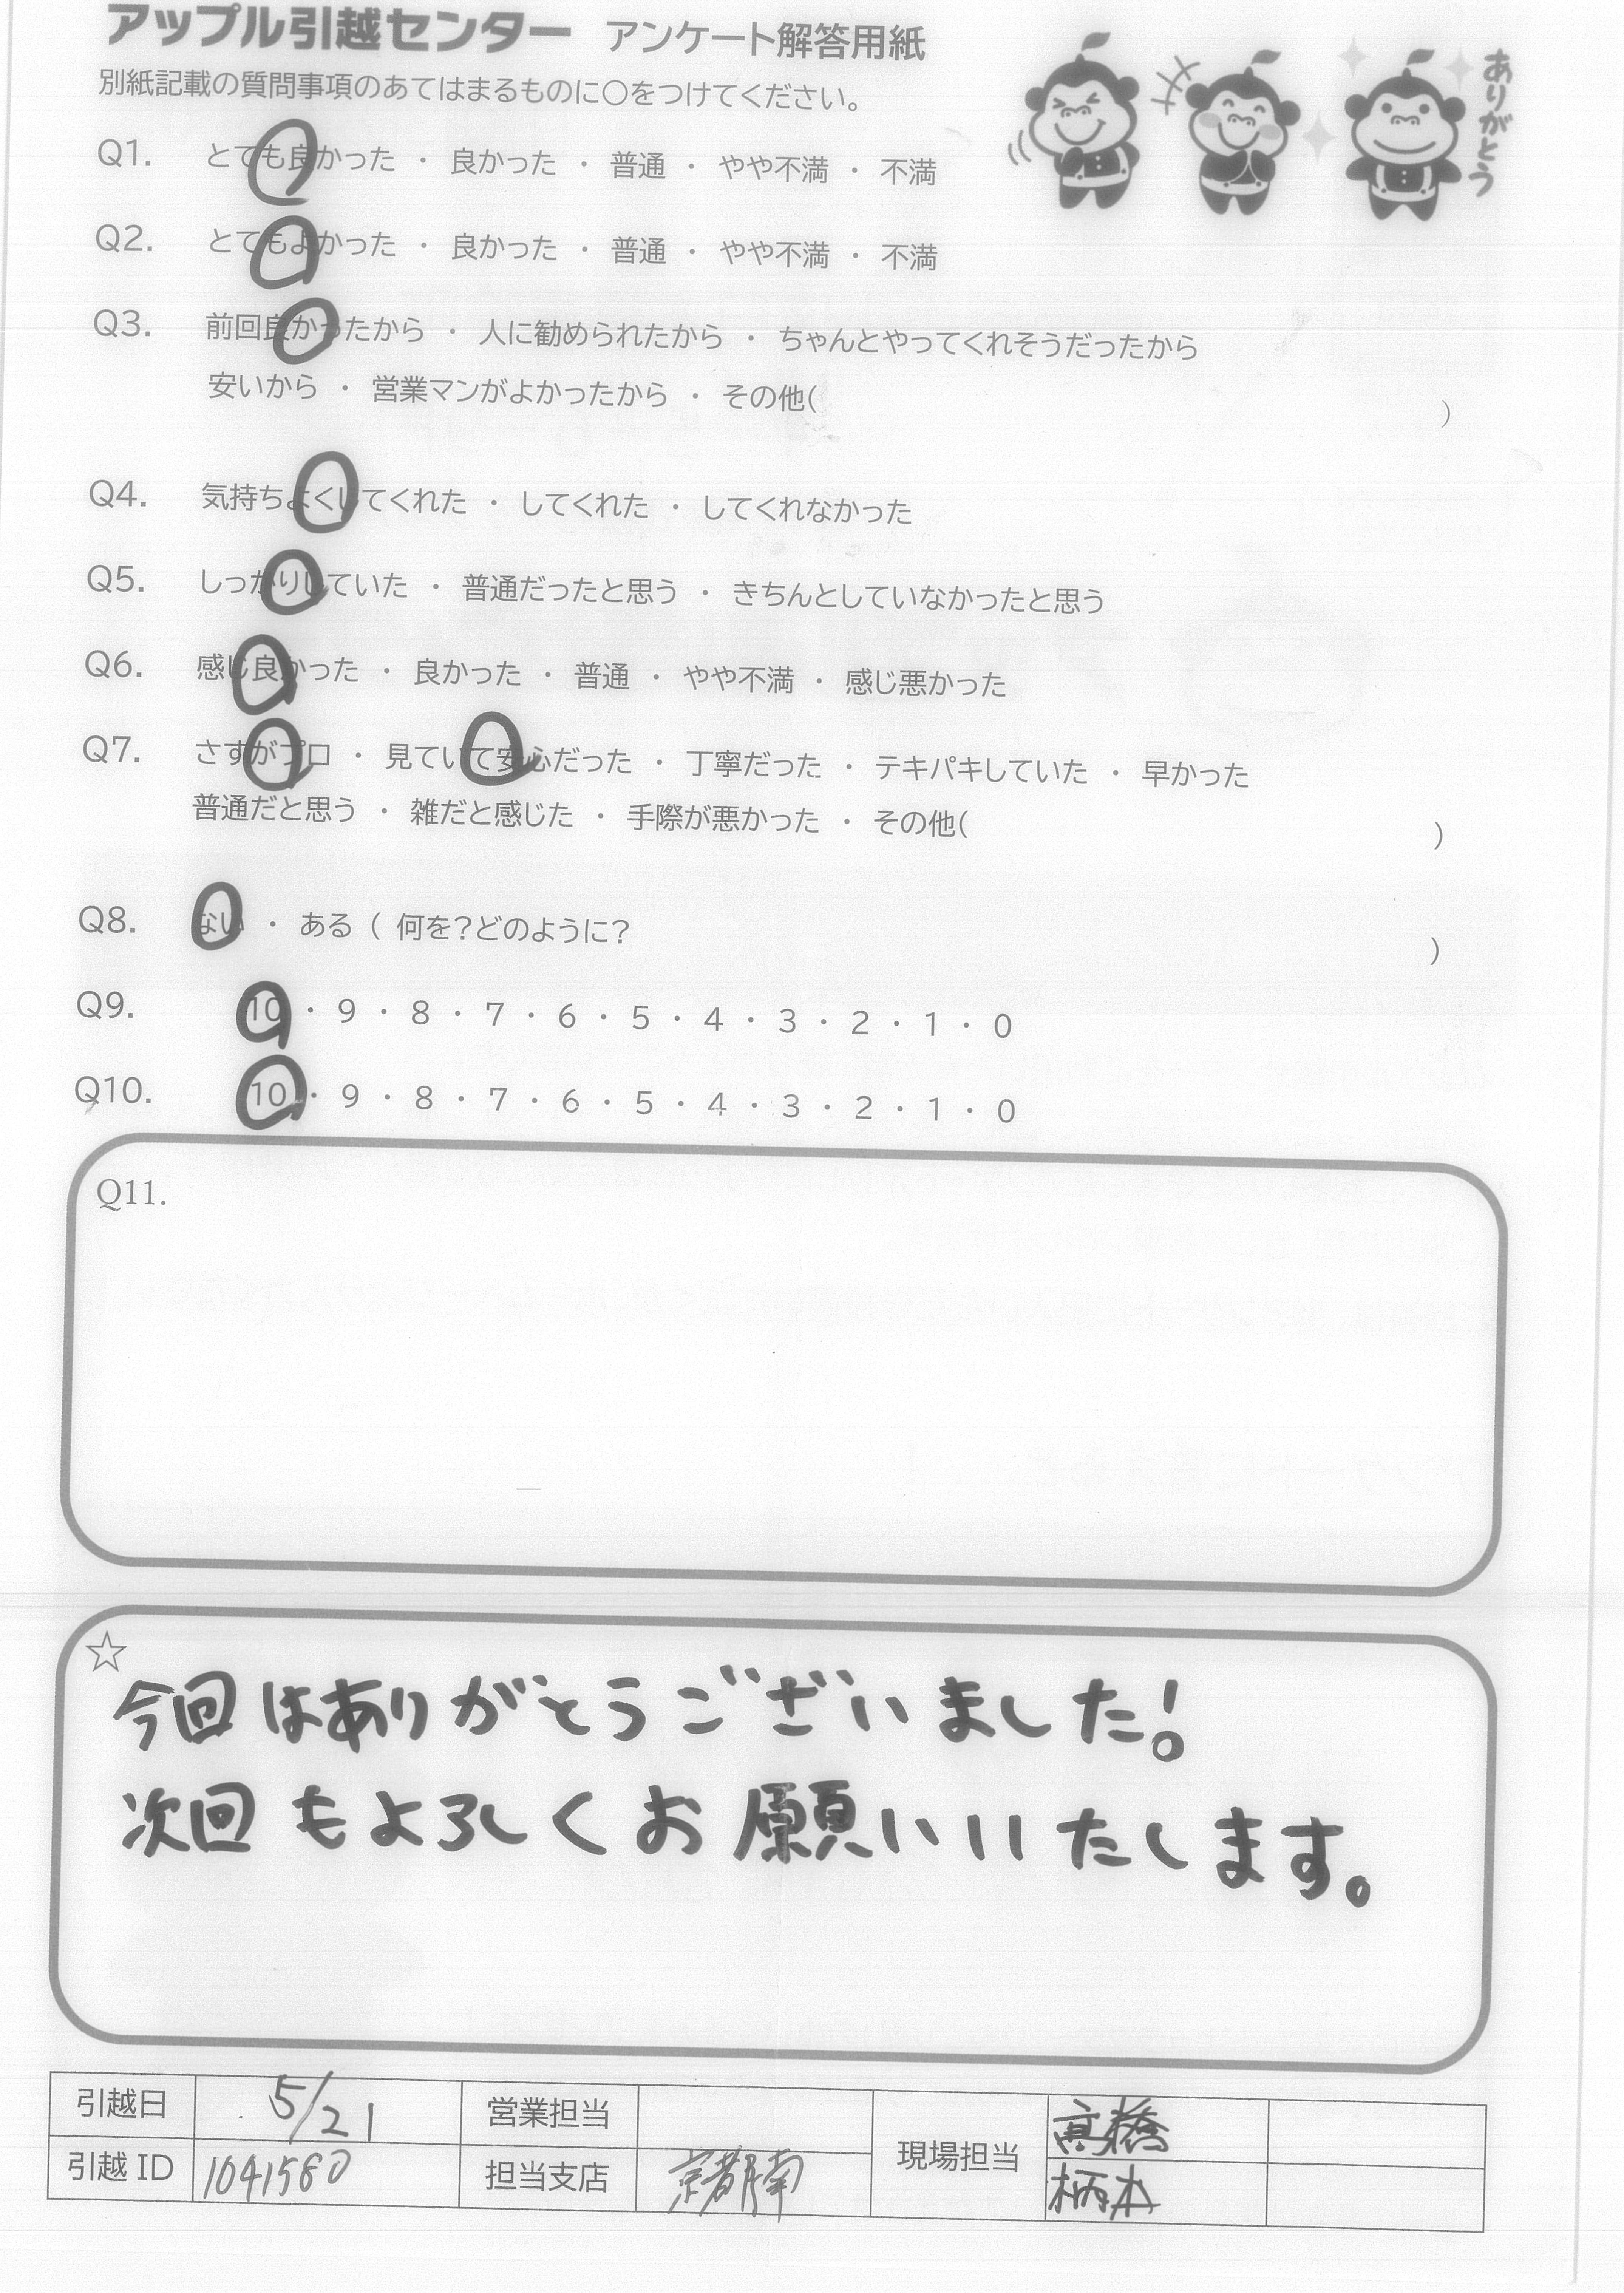 アップル引越センター アンケート解答用紙
別紙記載の質問事項のあてはまるものに○をつけてください。
ありがとう
Q1. とても良かった ・ 良かった ・ 普通 ・ やや不満 ・ 不満
Q2. とてもよかった ・ 良かった ・ 普通 ・ やや不満 ・ 不満
Q3. 前回良かったから ・ 人に勧められたから ・ ちゃんとやってくれそうだったから
安いから ・ 営業マンがよかったから ・ その他( )
Q4. 気持ちよくしてくれた ・ してくれた ・ してくれなかった
Q5. しっかりしていた ・ 普通だったと思う ・ きちんとしていなかったと思う
Q6. 感じ良かった ・ 良かった ・ 普通 ・ やや不満 ・ 感じ悪かった
Q7. さすがプロ ・ 見ていて安心だった ・ 丁寧だった ・ テキパキしていた ・ 早かった
普通だと思う ・ 雑だと感じた ・ 手際が悪かった ・ その他( )
Q8. ない ・ ある ( 何を?どのように? )
Q9. 10 ・ 9 ・ 8 ・ 7 ・ 6 ・ 5 ・ 4 ・ 3 ・ 2 ・ 1 ・ 0
Q10. 10 ・ 9 ・ 8 ・ 7 ・ 6 ・ 5 ・ 4 ・ 3 ・ 2 ・ 1 ・ 0
Q11.
☆
今回はありがとうございました!。
次回もよろしくお願いいたします。
引越日 5/21 営業担当 現場担当 高橋
引越ID 1041580 担当支店 京都南 柄本